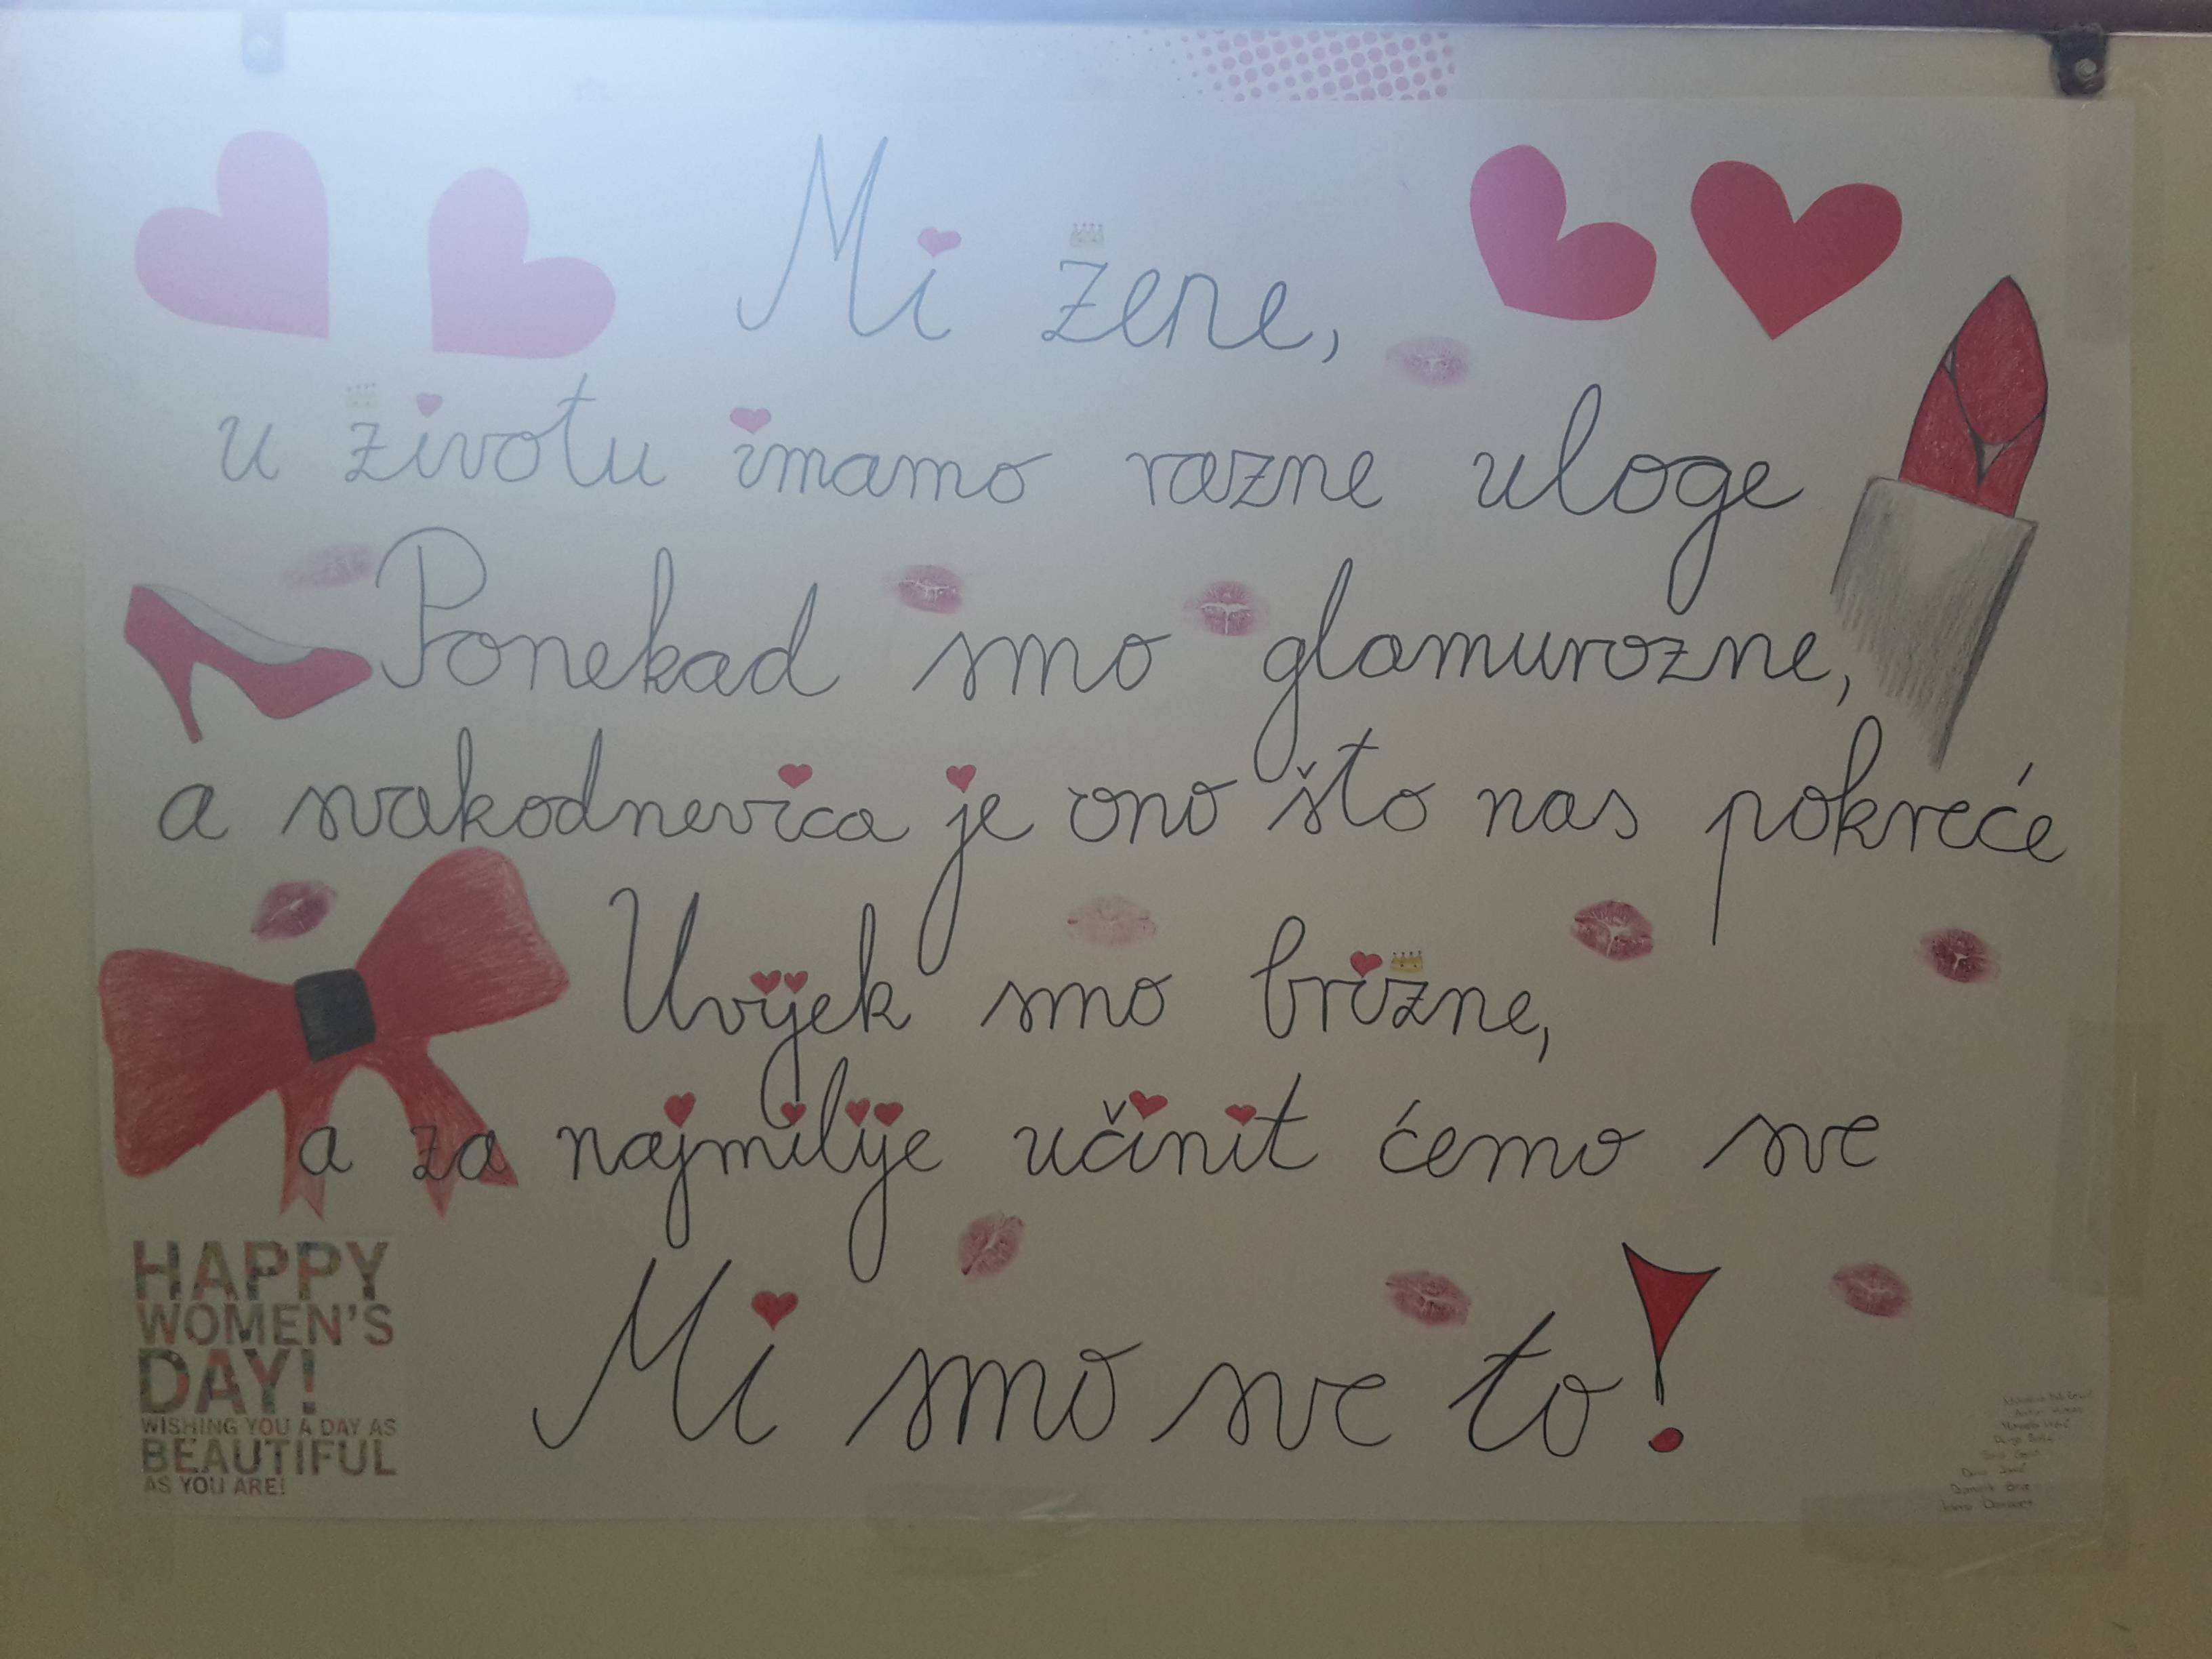 Mi žene,
u životu imamo razne uloge
Ponekad smo glamurozne,
a svakodnevica je ono što nas pokreće
Uvijek smo brižne,
a za najmilije učinit ćemo sve
Mi smo sve to!
HAPPY
WOMEN'S
DAY!
WISHING YOU A DAY AS
BEAUTIFUL
AS YOU ARE!